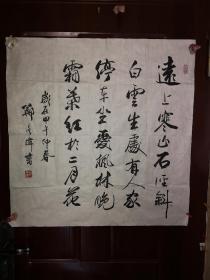 遠上寒山石徑斜
白雲生處有人家
停車坐愛楓林晚
霜葉紅於二月花
仲春
書